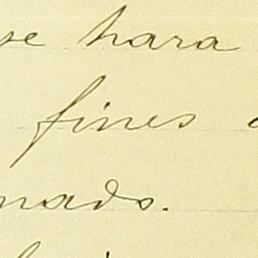 se hara
fines
nado.